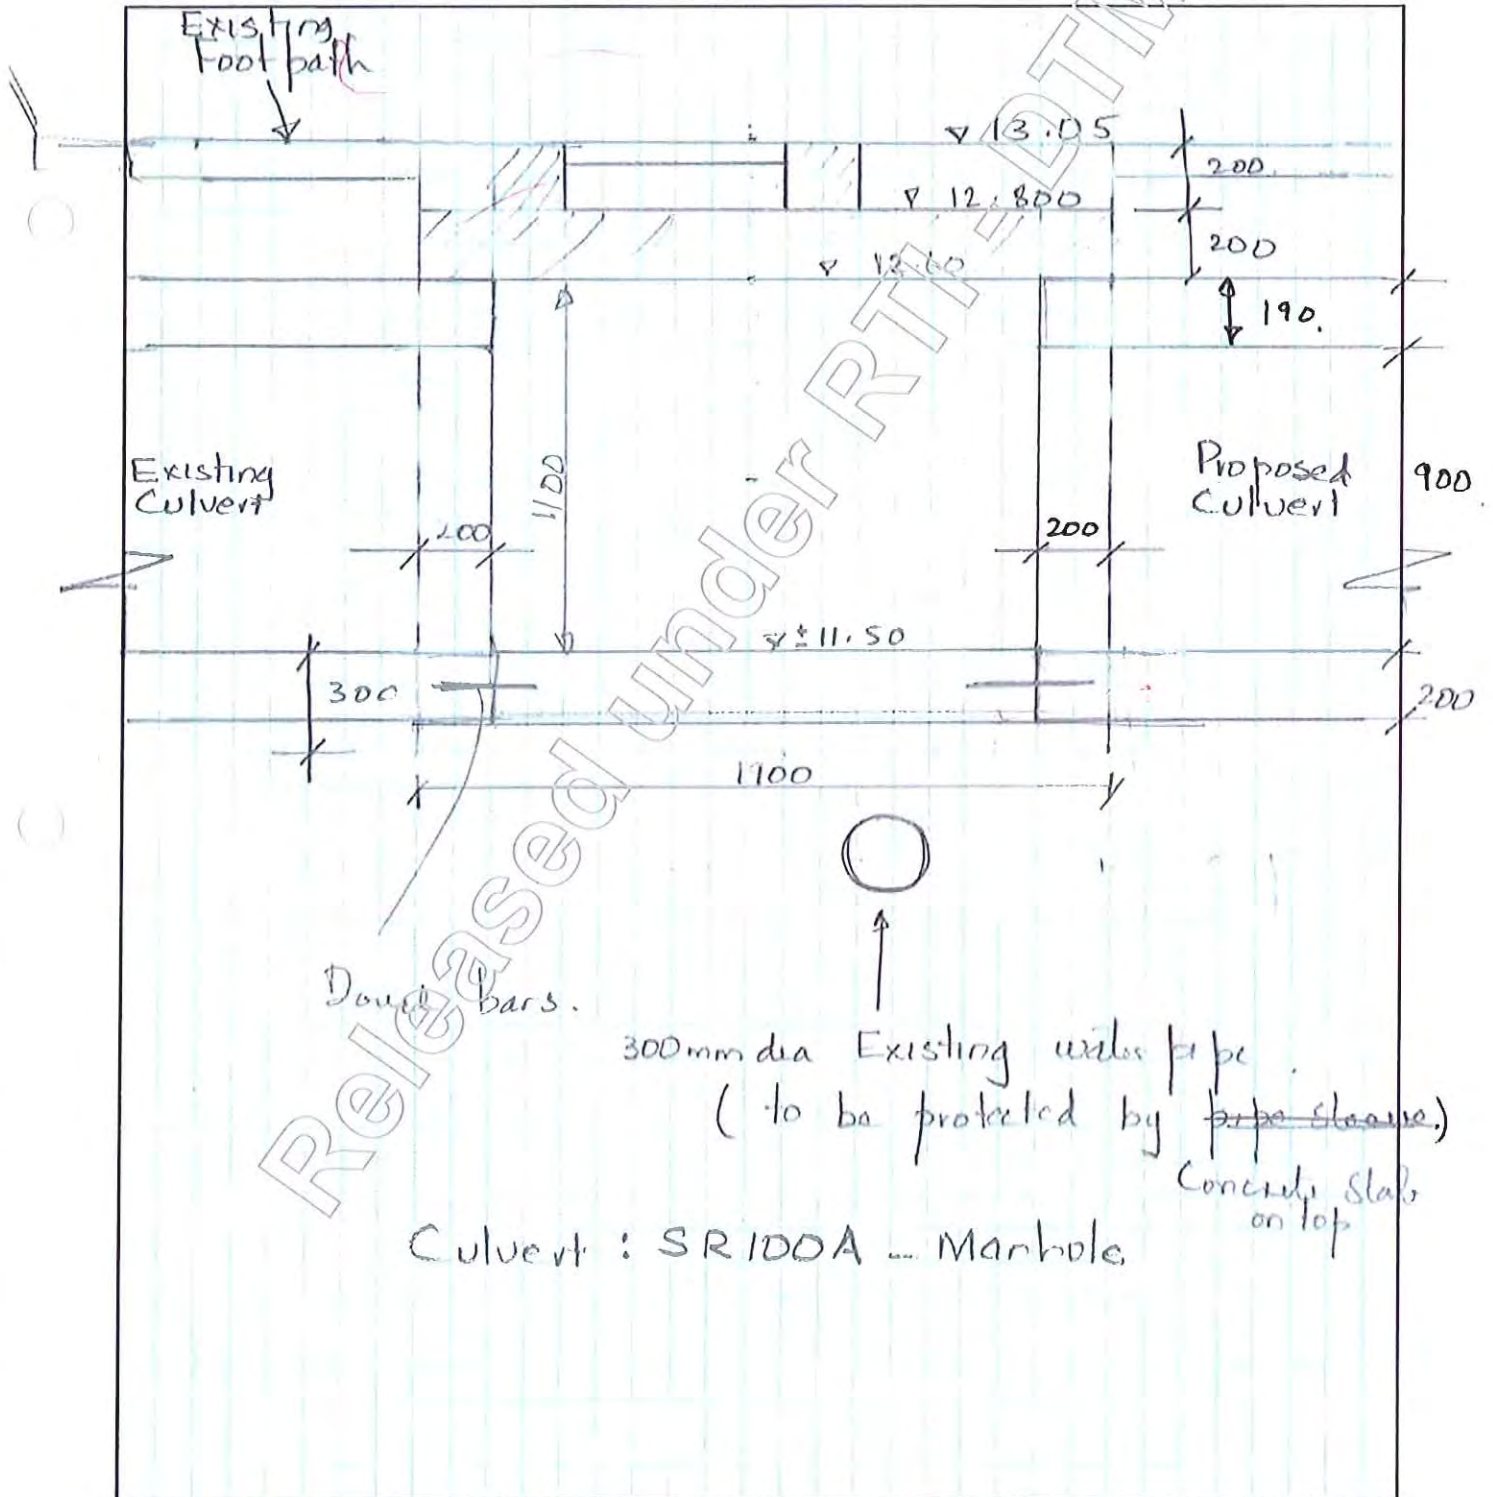 Existing
Foot path
13.05
200
12.800
200
12.60
190.
Existing
Culvert
1100
Proposed
Culvert
900
200
200
± 11.50
300
200
1900
Dowel bars.
300mm dia Existing water pipe.
( to be protected by pipe sleeve.)
Concrete Slab
on top
Culvert : SR100A - Manhole
Released under RTI - DTM